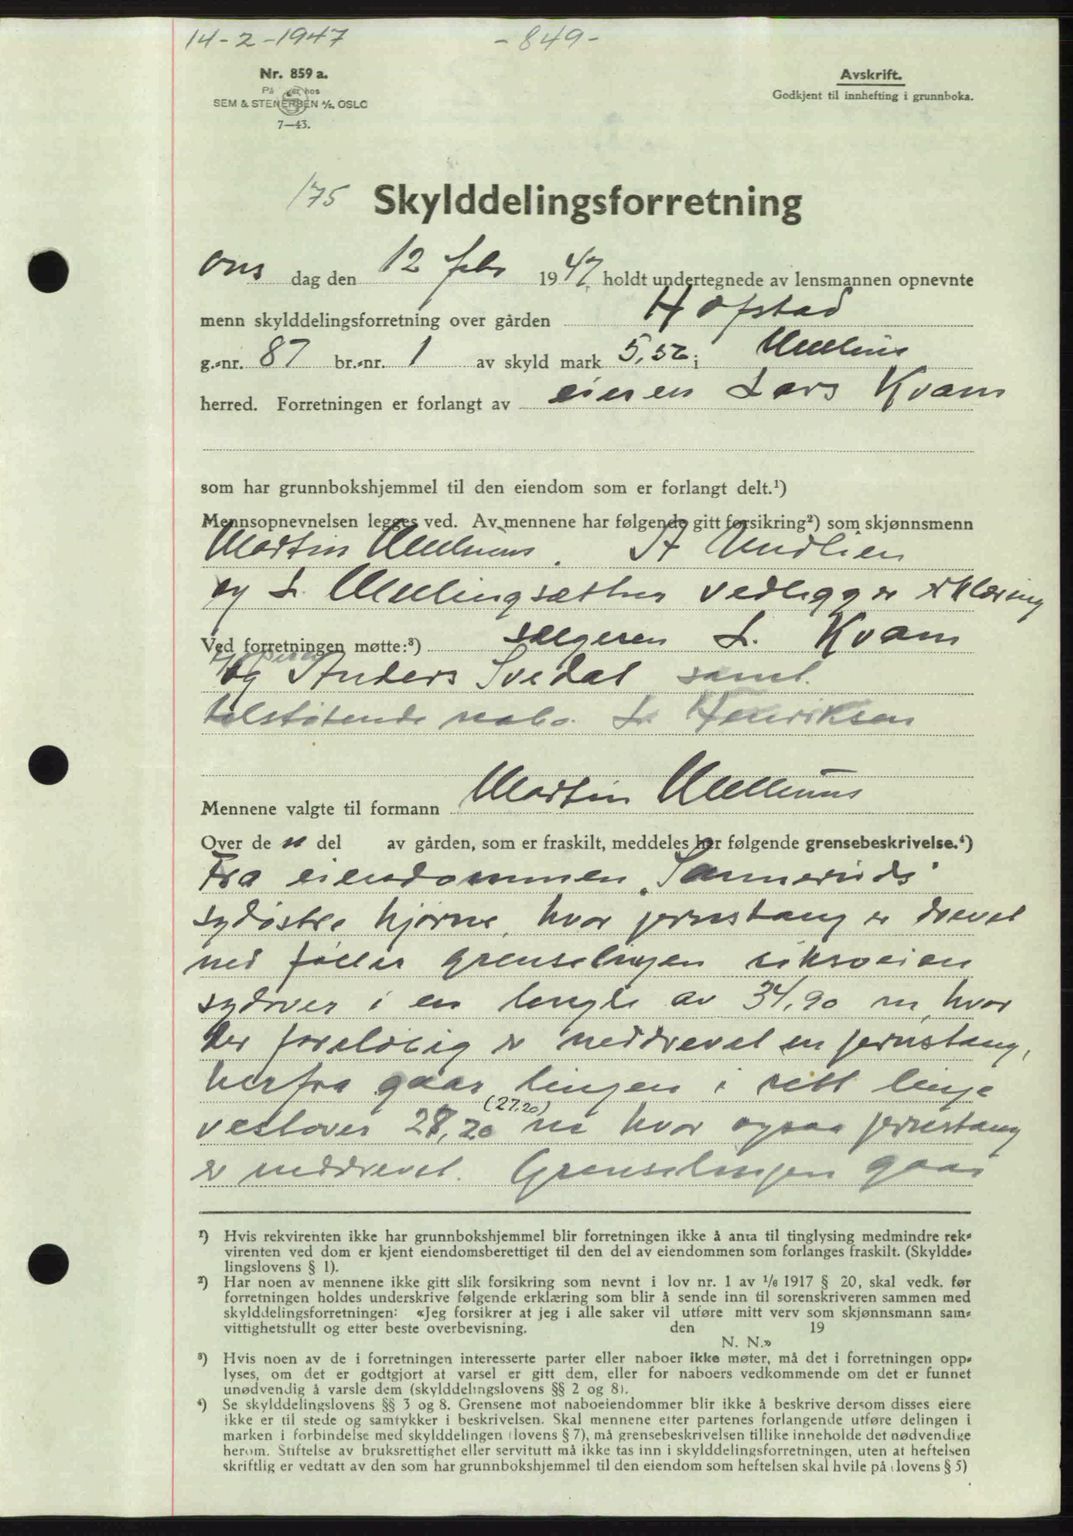 14-2-1947 -849-
Nr. 859 a.
Avskrift.
På hos
Godkjent til innhefting i grunnboka.
SEM & STENERSEN A/S. OSLO
7—43.
175 Skylddelingsforretning
ons dag den 12 febr 1947 holdt undertegnede av lensmannen opnevnte
menn skylddelingsforretning over gården Hofstad
g.-nr. 87 br.-nr. 1 av skyld mark 5,56 i
herred. Forretningen er forlangt av eieren Lars Kvam
som har grunnbokshjemmel til den eiendom som er forlangt delt.¹)
Mennsopnevnelsen legges ved. Av mennene har følgende gitt forsikring²) som skjønnsmenn
Martin
og L. vedlegger erklæring
Ved forretningen møtte:³) selgeren L. Kvam
og Anders Svedal samt
tilstøtende nabo L. Henriksen
Mennene valgte til formann Martin
Over de n del av gården, som er fraskilt, meddeles her følgende grensebeskrivelse.⁴)
Fra eiendommen "Sannerud's"
sydøstre hjørne, hvor jernstang er drevet
ned følger grenselinjen riksveien
sydover i en lengde av 34,90 m, hvor
der foreløbig er neddrevet en jernstang,
herfra gaar linjen i rett linje
(27.20)
vestover 28,20 m hvor ogsaa jernstang
er neddrevet. Grenselinjen gaar
¹) Hvis rekvirenten ikke har grunnbokshjemmel blir forretningen ikke å anta til tinglysing medmindre rek-
virenten ved dom er kjent eiendomsberettiget til den del av eiendommen som forlanges fraskilt. (Skyldde-
lingslovens § 1).
²) Har noen av mennene ikke gitt slik forsikring som nevnt i lov nr. 1 av ¹/₆ 1917 § 20, skal vedk. før
forretningen holdes underskrive følgende erklæring som blir å sende inn til sorenskriveren sammen med
skylddelingsforretningen: «Jeg forsikrer at jeg i alle saker vil utføre mitt verv som skjønnsmann sam-
vittighetsfullt og etter beste overbevisning. den 19
N. N.»
³) Hvis noen av de i forretningen interesserte parter eller naboer ikke møter, må det i forretningen opp-
lyses, om det er godtgjort at varsel er gitt dem, eller for naboers vedkommende om det er funnet
unødvendig å varsle dem (skylddelingslovens §§ 2 og 8).
⁴) Se skylddelingslovens §§ 3 og 8. Grensene mot naboeiendommer blir ikke å beskrive dersom disses eiere
ikke er til stede og samtykker i beskrivelsen. Skal mennene etter partenes forlangende utføre delingen i
marken i forbindelse med skylddelingen (lovens § 7), må grensebeskrivelsen tillike inneholde det nødvendige
herom. Stiftelse av bruksrettighet eller servitutt må ikke tas inn i skylddelingsforretningen, uten at heftelsen
skriftlig er vedtatt av den som har grunnbokshjemmel til den eiendom som heftelsen skal hvile på (lovens § 5)